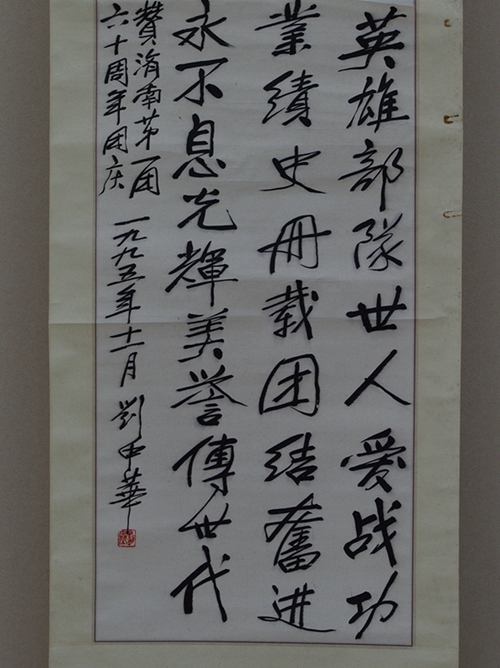 英雄部隊世人愛战功
業績史册载团结奮进
永不息光輝美誉傳世代
贊济南第一团
六十周年团庆
一九九五年十一月 劉中華